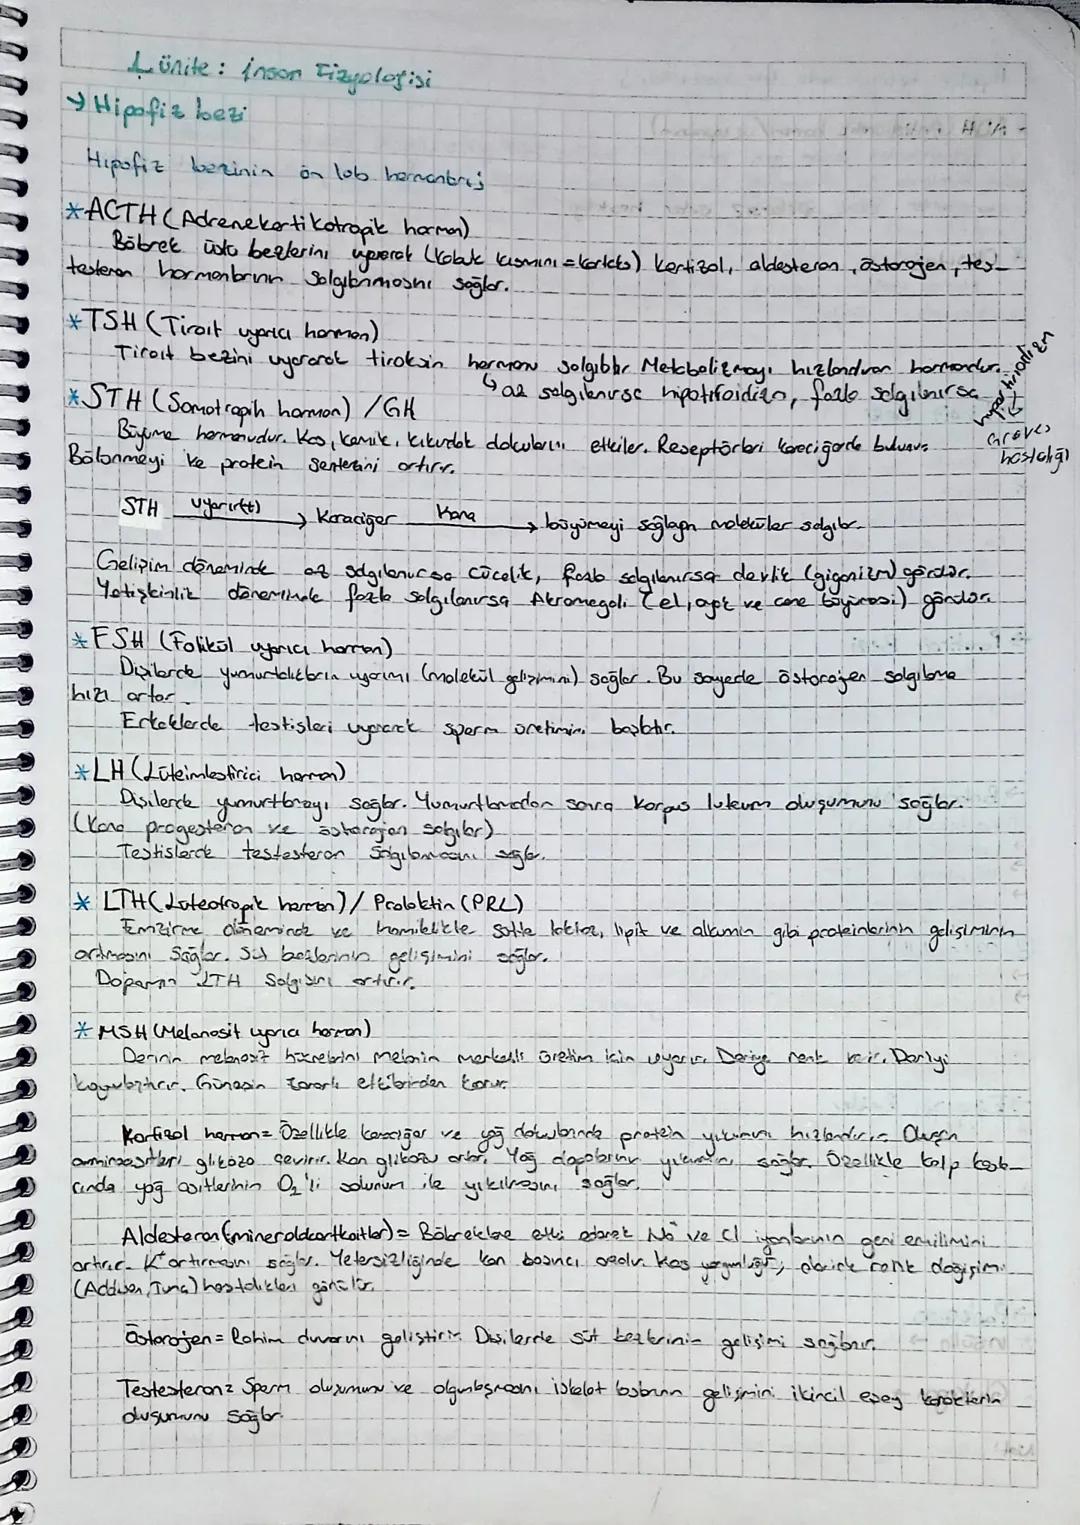 1. ünite: İnsan Fizyolojisi
→ Hipofiz bezi
Hipofiz bezinin ön lob hormonları;
*ACTH (Adrenekortikotropik hormon)
Böbrek üstü bezlerini uyararak (kabuk kısmını = korteks) kortizol, aldesteron, östorojen, tes-
testeron hormonlarının salgılanmasını sağlar.
*TSH (Tiroit uyarıcı hormon)
Tiroit bezini uyararak tiroksin hormonu salgılatır Metabolizmayı hızlandıran hormondur.
↳ az salgılanırsa hipotiroidizm, fazla salgılanırsa
hipertiroidizm
↓
Graves
hastalığı
*STH (Somotropik hormon) / GH
Büyüme hormonudur. Kas, kemik, kıkırdak dokularını etkiler. Reseptörleri karaciğerde bulunur.
Bölünmeyi ve protein sentezini artırır.
STH uyarır(+) → Karaciğer Kana → büyümeyi sağlayan moleküler salgılar.
Gelişim döneminde az salgılanırsa cücelik, fazla salgılanırsa devlik (giganizm) görülür.
Yetişkinlik döneminde fazla salgılanırsa Akromegali (el, ayak ve çene büyümesi) görülür.
*FSH (Folikül uyarıcı hormon)
Dişilerde yumurtalıkların uyarımı (molekül gelişimini) sağlar. Bu sayede östorojen salgılama
hızı artar.
Erkeklerde testisleri uyararak sperm üretimini başlatır.
*LH (Lüteinleştirici hormon)
Dişilerde yumurtlamayı sağlar. Yumurtlamadan sonra Korpus luteum oluşumunu sağlar.
(Kana progesteron ve östorojen salgılar)
Testislerde testesteron salgılanmasını sağlar.
* LTH (Luteotropik hormon) / Prolaktin (PRL)
Emzirme döneminde ve hamilelikte sütte laktoz, lipit ve albumin gibi proteinlerinin gelişiminin
artmasını sağlar. Süt bezlerinin gelişimini sağlar.
Dopamin LTH Salgısını artırır.
* MSH (Melanosit uyarıcı hormon)
Derinin melanosit hücrelerini melanin üretim için uyarır. Deriye renk verir. Deriyi
koyulaştırır. Güneşin zararlı etkilerinden korur.
Kortizol hormon = Özellikle karaciğer ve yağ dokularında protein yıkımını hızlandırır. Oluşan
aminoasitleri glikoza çevirir. Kan glikozu artar. Yağ depolarının yıkımını sağlar. Özellikle kalp kasla-
rında yağ asitlerinin O₂'li solunum ile yıkılmasını sağlar.
Aldesteron = Böbreklere etki ederek Na ve Cl iyonlarının geri emilimini
artırır. K⁺ artırmasını sağlar. Yetersizliğinde kan basıncı azalır. Kas yorgunluğu, deride renk değişimi
(Addison, Tunç) hastalıkları görülür.
Östorojen = Rahim duvarını geliştirir. Dişilerde süt bezlerinin gelişimi sağlanır.
Testesteron = Sperm oluşumunu ve olgunlaşmasını iskelet kasların gelişimini ikincil eşey karakterin
oluşumunu sağlar.